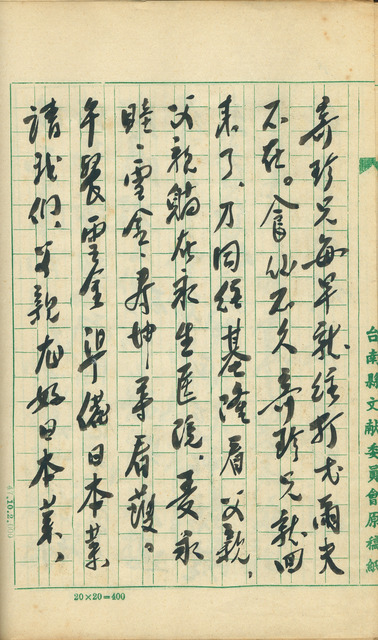 台南縣文献委員會原稿紙
寿珍兄每早就往打戈爾夫
不在。食後不久寿珍兄就回
来了、乃同往基隆看父親，
父親躺在永生医院。受永
睦、雪金、君坤等看護。
午餐雪金準備日本菜
請我們、父親尤好日本菜、
20×20=400